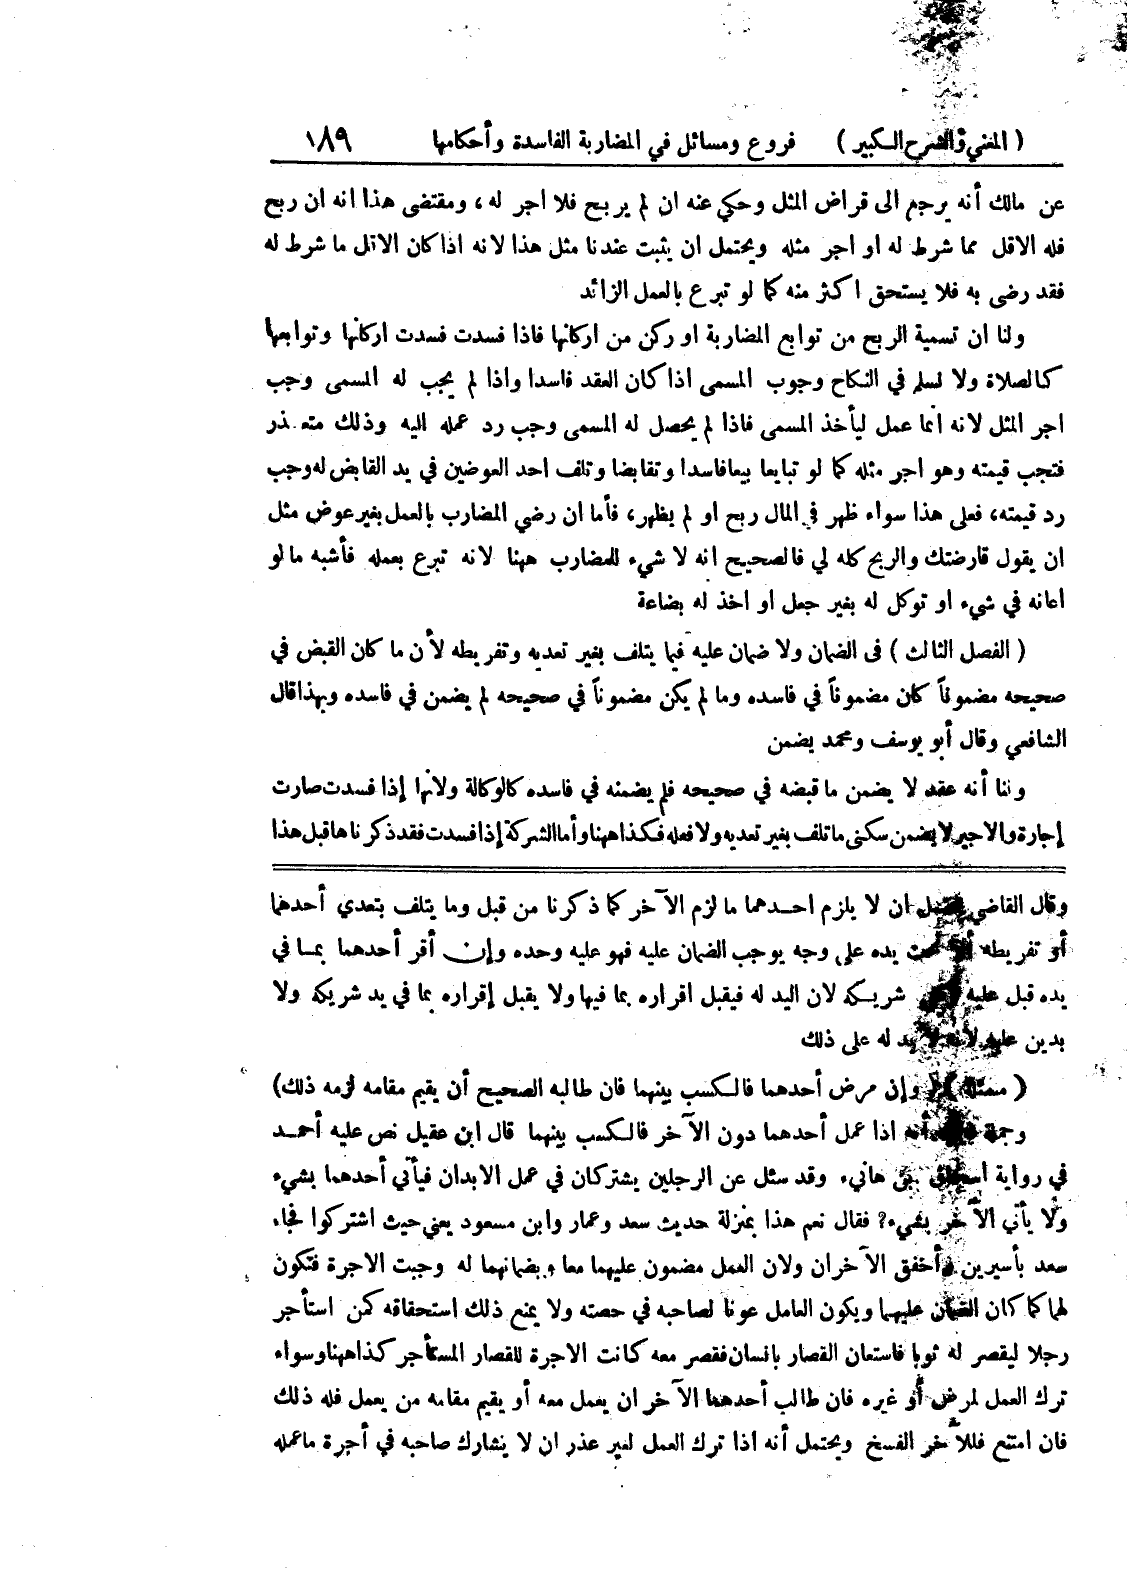 ( المغني والشرح الكبير ) فروع ومسائل في المضاربة الفاسدة وأحكامها ١٨٩
عن مالك أنه يرجع الى قراض المثل وحكي عنه ان لم يربح فلا اجر له ، ومقتضى هذا انه ان ربح
فله الاقل مما شرط له او اجر مثله ويحتمل ان يثبت عندنا مثل هذا لانه اذا كان الاقل ما شرط له
فقد رضي به فلا يستحق اكثر منه كما لو تبرع بالعمل الزائد
ولنا ان تسمية الربح من توابع المضاربة او ركن من اركانها فاذا فسدت فسدت اركانها وتوابعها
كالصلاة ولا نسلم في النكاح وجوب المسمى اذا كان العقد فاسدا واذا لم يجب له المسمى وجب
اجر المثل لانه انما عمل ليأخذ المسمى فاذا لم يحصل له المسمى وجب رد عمله اليه وذلك متعذر
فتجب قيمته وهو اجر مثله كما لو تبايعا بيعا فاسدا وتقابضا وتلف احد العوضين في يد القابض له وجب
رد قيمته ، فعلى هذا سواء ظهر في المال ربح او لم يظهر ، فأما ان رضي المضارب بالعمل بغير عوض مثل
ان يقول قارضتك والربح كله لي فالصحيح انه لا شيء للمضارب ههنا لانه تبرع بعمله فأشبه ما لو
اعانه في شيء او توكل له بغير جعل او اخذ له بضاعة
( الفصل الثالث ) في الضمان ولا ضمان عليه فيما يتلف بغير تعديه وتفريطه لأن ما كان القبض في
صحيحه مضموناً كان مضموناً في فاسده وما لم يكن مضموناً في صحيحه لم يضمن في فاسده وبهذا قال
الشافعي وقال أبو يوسف ومحمد يضمن
ولنا أنه عقد لا يضمن ما قبضه في صحيحه فلم يضمنه في فاسده كالوكالة ولانها إذا فسدت صارت
إجارة والاجير لا يضمن سكنى ما تلف بغير تعديه ولا فعله فكذا ههنا وأما الشركة إذا فسدت فقد ذكرناها قبل هذا
وقال القاضي يحتمل ان لا يلزم احدهما ما لزم الآخر كما ذكرنا من قبل وما يتلف بتعدي أحدهما
أو تفريطه أو تحت يده على وجه يوجب الضمان عليه فهو عليه وحده وإن أقر أحدهما بما في
يده قبل عليه وعلى شريكه لان اليد له فيقبل اقراره بما فيها ولا يقبل إقراره بما في يد شريكه ولا
بدين عليه لأنه لا يد له على ذلك
( مسئلة ) ( وإن مرض أحدهما فالكسب بينهما فان طالبه الصحيح أن يقيم مقامه لزمه ذلك )
وجملة أنه اذا عمل أحدهما دون الآخر فالكسب بينهما قال ابن عقيل نص عليه أحمد
في رواية اسحاق بن هانيء وقد سئل عن الرجلين يشتركان في عمل الابدان فيأتي أحدهما بشيء
ولا يأتي الآخر بشيء ؟ فقال نعم هذا بمنزلة حديث سعد وعمار وابن مسعود يعني حيث اشتركوا فجاء
سعد بأسيرين وأخفق الآخران ولان العمل مضمون عليهما معا وبضمانهما له وجبت الاجرة فتكون
لهما كما كان الضمان عليهما ويكون العامل عونا لصاحبه في حصته ولا يمنع ذلك استحقاقه كمن استأجر
رجلا ليقصر له ثوبا فاستعان القصار بانسان فقصر معه كانت الاجرة للقصار المستأجر كذا ههنا وسواء
ترك العمل لمرض أو غيره فان طالب أحدهما الآخر ان يعمل معه أو يقيم مقامه من يعمل فله ذلك
فان امتنع فللآخر الفسخ ويحتمل أنه اذا ترك العمل لغير عذر ان لا يشارك صاحبه في أجرة ما عمله